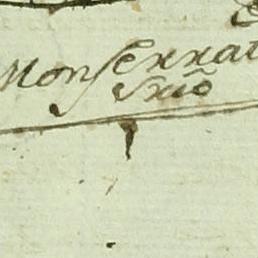 Monserrat
Srio